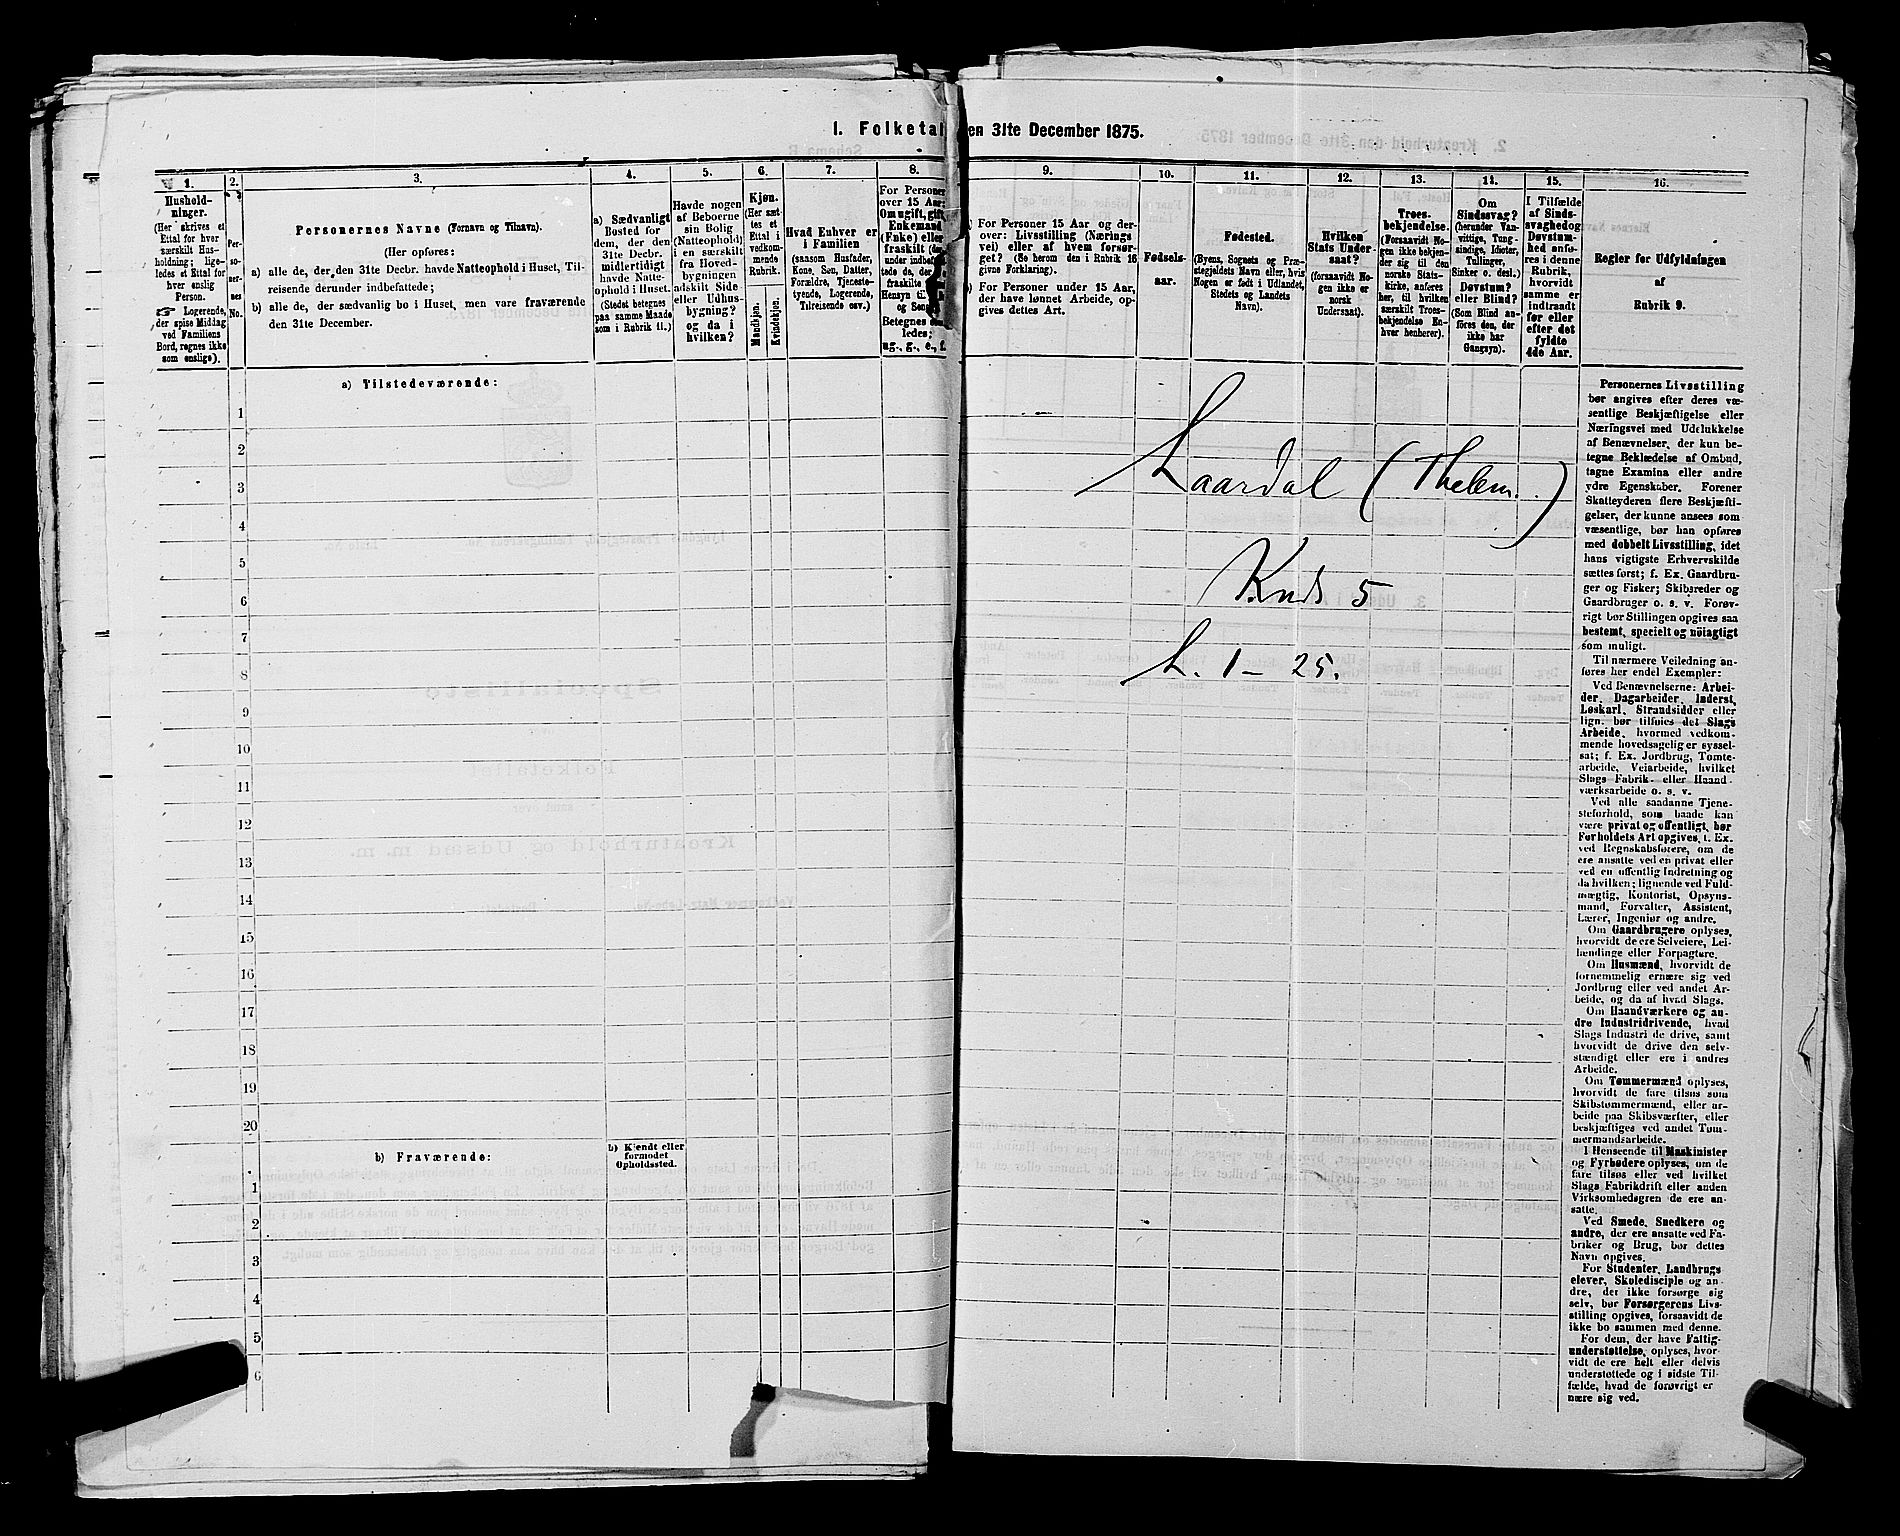 1. Folketal
en 31te December 1875.
1.
2.
3.
4.
5.
6.
7.
8.
9.
10.
11.
12.
13.
14.
15.
16.
Hushold-
ninger.
(Her skrives et
Ettal for hver
særskilt Hus-
holdning; lige-
ledes et Ettal for
hver enslig
Person.
☞ Logerende,
der spise Middag
ved Familiens
Bord, regnes ikke
som enslige).
Per-
so-
ner-
nes
No.
Personernes Navne (Fornavn og Tilnavn).
(Her opføres:
a) alle de, der den 31te Decbr. havde Natteophold i Huset, Til-
reisende derunder indbefattede;
b) alle de, der sædvanlig bo i Huset, men vare fraværende
den 31te December.
a) Sædvanligt
Bosted for
dem, der den
31te Decbr.
midlertidigt
havde Natte-
ophold i Huset.
(Stedet betegnes
paa samme Maade
som i Rubrik 11.)
Havde nogen
af Beboerne
sin Bolig
(Natteophold)
i en særskilt
fra Hoved-
bygningen
adskilt Side-
eller Udhus-
bygning?
og da i
hvilken?
Kjøn.
(Her sæt-
tes et
Ettal i
vedkom-
mende
Rubrik.
Mandkjøn.
Kvindekjøn.
Hvad Enhver er
i Familien
(saasom Husfader,
Kone, Søn, Datter,
Forældre, Tjeneste-
tyende, Logerende,
Tilreisende osv.)
For Personer
over 15 Aar:
Om ugift, gift,
Enkemand
(Enke) eller
fraskilt
Betegnes
ledes:
ug., g., e., f.
For Personer 15 Aar og der-
over: Livsstilling (Nærings
vei) eller af hvem forsør-
get? (Se herom den i Rubrik 16
givne Forklaring).
For Personer under 15 Aar,
der have lønnet Arbeide, op-
gives dettes Art.
Fødsels-
aar.
Fødested.
(Byens, Sognets og Præ-
stegjeldets Navn eller, hvis
Nogen er født i Udlandet,
Stedets og Landets
Navn).
Hvilken
Stats Under-
saat?
(forsaavidt No-
gen ikke er
norsk
Undersaat).
Troes-
bekjendelse.
(Forsaavidt No-
gen ikke bekjen-
der sig til den
norske Stats-
kirke, anføres
her, til hvilken
særskilt Troes-
bekjendelse En-
hver henhører).
Om
Sindssvag?
(herunder Van-
vittige, Tung-
sindige, Idioter,
Tullinger,
Sinker o. desl.)
Døvstum?
eller Blind?
(Som Blind an-
føres den, der
ikke har
Gangsyn).
I Tilfælde
af Sinds-
svaghed og
Døvstum-
hed anfø-
res i denne
Rubrik,
hvorvidt
samme er
indtraadt
før eller
efter det
fyldte
4de Aar.
Regler for Udfyldningen
af
Rubrik 9.
a) Tilstedeværende:
1
2
3
4
5
6
7
8
9
10
11
12
13
14
15
16
17
18
19
20
b) Fraværende:
b) Kjendt eller
formodet
Opholdssted.
1
2
3
4
5
6
Laardal (Thelem.)
Kreds 5
L. 1 - 25.
Personernes Livsstilling
bør angives efter deres væ-
sentlige Beskjæftigelse eller
Næringsvei med Udelukkelse
af Benævnelser, der kun be-
tegne Beklædelse af Ombud,
tagne Examina eller andre
ydre Egenskaber. Forener
Skatteyderen flere Beskjæfti-
gelser, der kunne ansees som
væsentlige, bør han opføres
med dobbelt Livsstilling, idet
hans vigtigste Erhvervskilde
sættes først; f. Ex. Gaardbru-
ger og Fisker; Skibsreder og
Gaardbruger o. s. v. Forøv-
rigt bør Stillingen opgives saa
bestemt, specielt og nøiagtigt
som muligt.
Til nærmere Veiledning an-
føres her endel Exempler:
Ved Benævnelserne: Arbei-
der, Dagarbeider, Inderst,
Løskarl, Strandsidder eller
lign. bør tilføies det Slags
Arbeide, hvormed vedkom-
mende hovedsagelig er syssel-
sat; f. Ex. Jordbrug, Tomte-
arbeide, Veiarbeide, hvilket
Slags Fabrik- eller Haand-
værksarbeide o. s. v.
Ved alle saadanne Tjene-
steforhold, som baade kan
være privat og offentligt, bør
Forholdets Art opgives, f. Ex.
ved Regnskabsførere, om de
ere ansatte ved en privat eller
ved en offentlig Indretning og
da hvilken; lignende ved Fuld-
mægtig, Kontorist, Opsyns-
mand, Forvalter, Assistent,
Lærer, Ingeniør og andre.
Om Gaardbrugere oplyses,
hvorvidt de ere Selveiere, Lei-
lændinge eller Forpagtere.
Om Husmænd, hvorvidt de
fornemmelig ernære sig ved
Jordbrug eller ved andet Ar-
beide, og da af hvad Slags.
Om Haandværkere og an-
dre Industridrivende, hvad
Slags Industri de drive, samt
hvorvidt de drive den selv-
stændigt eller ere i andres
Arbeide.
Om Tømmermænd oplyses,
hvorvidt de fare tilsøs som
Skibstømmermænd, eller ar-
beide paa Skibsværfter, eller
beskjæftiges ved andet Tøm-
mermandsarbeide.
I Henseende til Maskinister
og Fyrbødere oplyses, om de
fare tilsøs eller ved hvilket
Slags Fabrikdrift eller anden
Virksomhedsgren de ere an-
satte.
Ved Smede, Snedkere og
andre, der ere ansatte ved Fa-
briker og Brug, bør dettes
Navn opgives.
For Studenter, Landbrugs
elever, Skoledisciple og an-
dre, der ikke forsørge sig
selv, bør Forsørgerens Livs-
stilling opgives, forsaavidt de
ikke bo sammen med denne.
For dem, der have Fattig-
understøttelse, oplyses, hvor-
vidt de ere helt eller delvis
understøttede og i sidste Til-
fælde, hvad de forøvrigt er
nære sig ved.